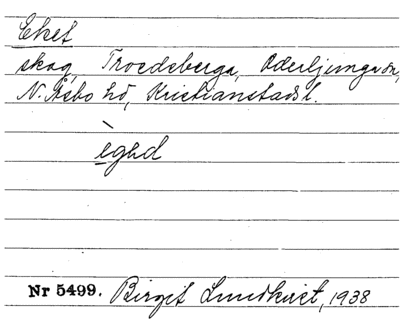 Eket
skog, Troedsberga, Oderljunga sn,
N. Åsbo hd, Kristianstads l.
Nr 5499. Birgit Lundkvist, 1938